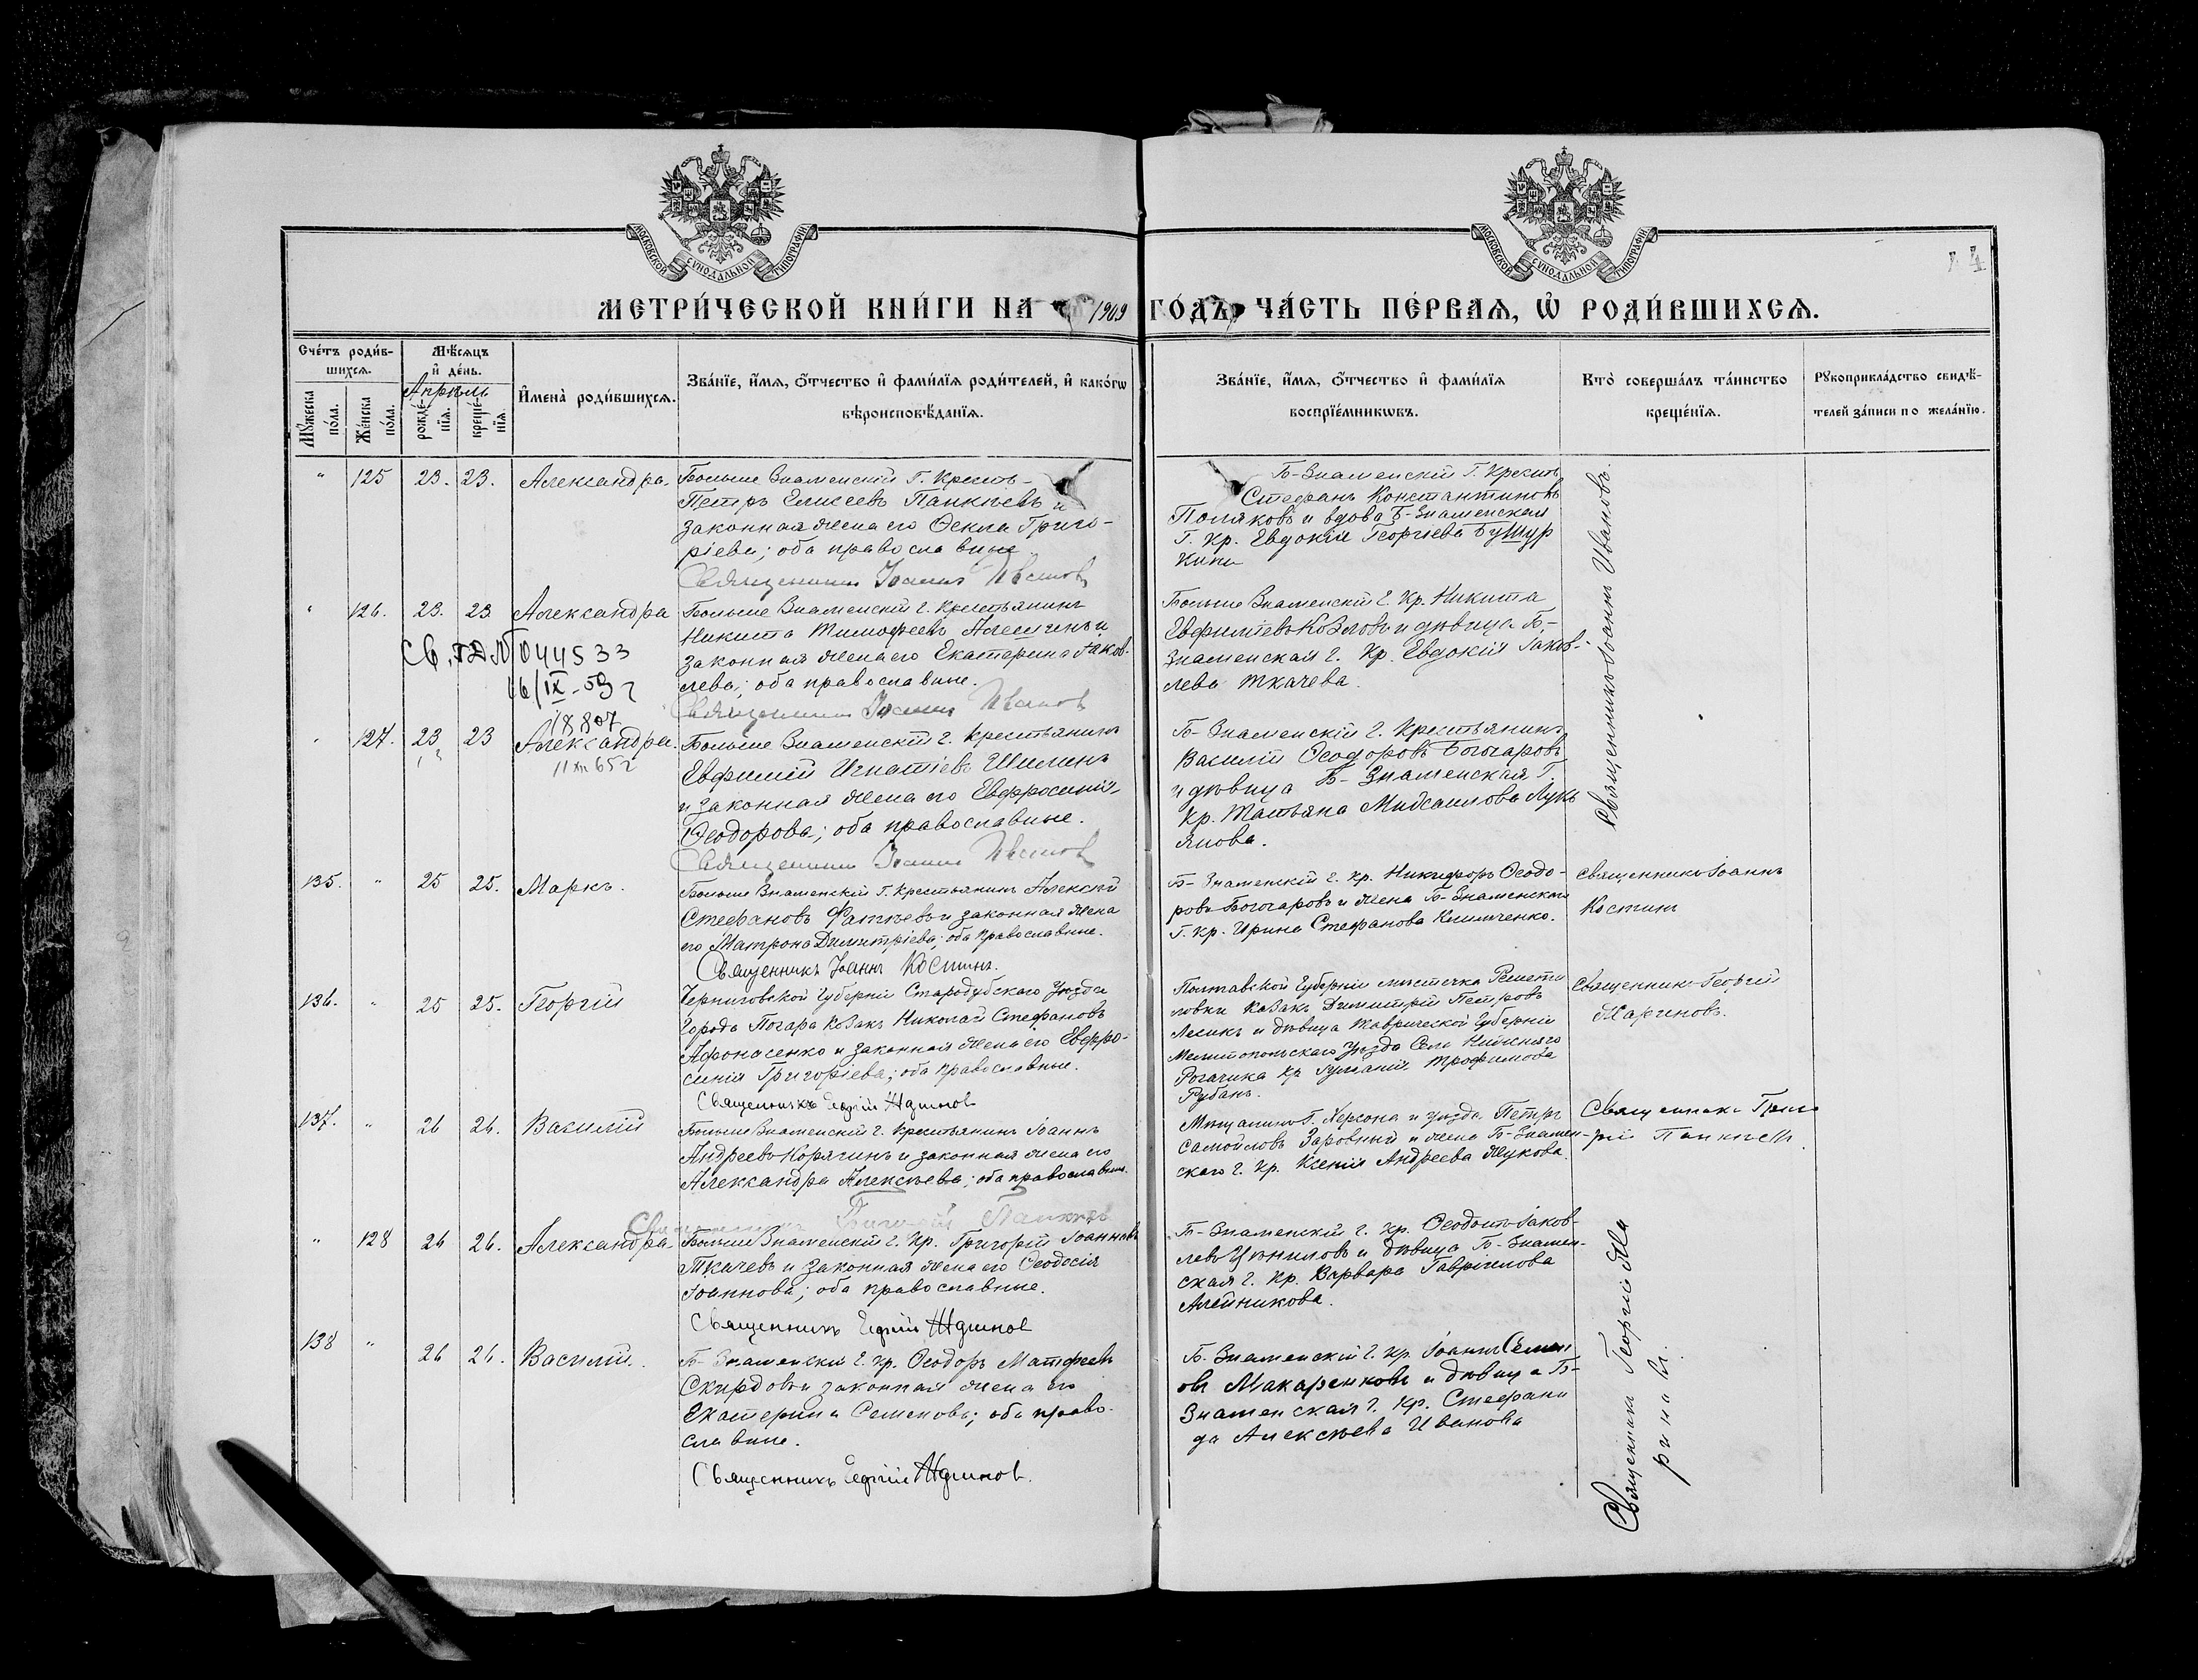 МОСКОВСКОЙ СѴНОДАЛЬНОЙ ТИПОГРАФІИ
МОСКОВСКОЙ СѴНОДАЛЬНОЙ ТИПОГРАФІИ
4
МЕТРИ́ЧЕСКОЙ КНИ́ГИ НА 1909 ГО́ДЪ, ЧА́СТЬ ПЕ́РВАѦ, Ѡ҆ РОДИ́ВШИХСѦ.
Сче́тъ роди́в-
шихсѧ.
Мꙋ́жеска по́ла.
Же́нска по́ла.
Мѣ́сѧцъ
и҆ де́нь.
Апрѣль
рожде́-нїѧ.
креще́-нїѧ.
И҆мена̀ роди́вшихсѧ.
Зва́нїе, и҆́мѧ, ѻ҆́тчество и҆ фами́лїѧ роди́телей, и҆ како́гѡ
вѣроисповѣ́данїѧ.
Зва́нїе, и҆́мѧ, ѻ҆́тчество и҆ фами́лїѧ
воспрїе́мникѡвъ.
Кто̀ соверша́лъ та́инство
креще́нїѧ.
Рꙋкоприкла́дство свидѣ́-
телей за́писи по жела́нїю.
" 125 23. 23. Александра.
Больше Знаменскій Г. Крест-
Петръ Елисеевъ Панкѣевъ и
законная жена его Ѳекла Григо-
ріева; оба православные
Священникъ Іоаннъ Ивановъ
Б-Знаменскій Г. Крест
Стефанъ Константиновъ
Поляковъ и вдова Б-Знаменская
Г. Кр. Евдокія Георгіева Бушур
кина
Священникъ Іоаннъ Ивановъ.
" 126. 23. 23 Александра
Св. № 044533
16/IX-59 г
Больше Знаменскій г. Крестьянинъ
Никита Тимофеевъ Алешинъ и
законная жена его Екатерина Іаков-
лева; оба православные.
Священникъ Іоаннъ Ивановъ
Больше Знаменскій г. Кр. Никита
Евфиміевъ Козловъ и дѣвица Б-
Знаменская г. Кр. Евдокія Іаков-
лева Ткачева.
18807
" 127. 23 23 Александра.
11 XII 65 г
Больше Знаменскій г. Крестьянинъ
Евфимій Игнатіевъ Шилинъ
и законная жена его Евфросинія
Ѳеодорова; оба православные.
Священникъ Іоаннъ Ивановъ
Б-Знаменскій г. Крестьянинъ
Василій Ѳеодоровъ Богочаровъ
и дѣвица Б-Знаменская Г.
Кр. Татьяна Лукь
янова.
135. " 25 25. Маркъ.
Больше Знаменскій Г. Крестьянинъ Алексѣй
Стефановъ Фатѣевъ и законная жена
его Матрона Димитріева; оба православные.
Священникъ Іоаннъ Костинъ.
Б-Знаменскій г. Кр. Никифоръ Ѳеодо-
ровъ Богочаровъ и жена Б-Знаменскаго
Г. Кр. Ирина Стефанова Климченко.
Священникъ Іоаннъ
Костинъ
136. " 25 25. Георгій
Черниговской Губерніи Стародубскаго Уѣзда
Города Погара Козакъ Николай Стефановъ
Афонасенко и законная жена его Евфро-
синія Григоріева; оба православные.
Священникъ Георгій
Полтавской Губерніи мѣстечка Решети
ловки Козакъ Димитрій Петровъ
Лесикъ и дѣвица Таврической Губерніи
Мелитопольскаго Уѣзда Села Нижняго
Рогачика Кр. Іуліанія Трофимова
Рубанъ.
Священникъ Георгій
Мариновъ.
137. " 26 26. Василій
Больше Знаменскій г. Крестьянинъ Іоаннъ
Андреевъ Корягинъ и законная жена его
Александра Алексѣева; оба православные.
Священникъ Григорій Панкѣевъ
Мѣщанинъ Г. Херсона и уѣзда Петръ
Самойловъ Заровный и жена Б-Знамен-
скаго г. Кр. Ксенія Андреева Жукова.
Священникъ Григо
рій Панкѣевъ.
" 128 26 26. Александра
Больше Знаменскій г. Кр. Григорій Іоанновъ
Ткачевъ и законная жена его Ѳеодосія
Іоаннова; оба православные.
Священникъ Георгій
Б-Знаменскій г. Кр. Ѳеодотъ Іаков-
левъ и дѣвица Б-Знамен-
ская г. Кр. Варвара Гавріилова
Алейникова.
Священникъ Георгій Ма
риновъ.
138 " 26 26. Василій.
Б-Знаменскій г. Кр. Ѳеодоръ Матфеевъ
Скирдовъ и законная жена его
Екатерина Семенова; оба право-
славные.
Священникъ Георгій
Б-Знаменскій г. Кр. Іоаннъ Семен
овъ Макаренковъ и дѣвица Б-
Знаменская г. Кр. Стефани
да Алексѣева Иванова